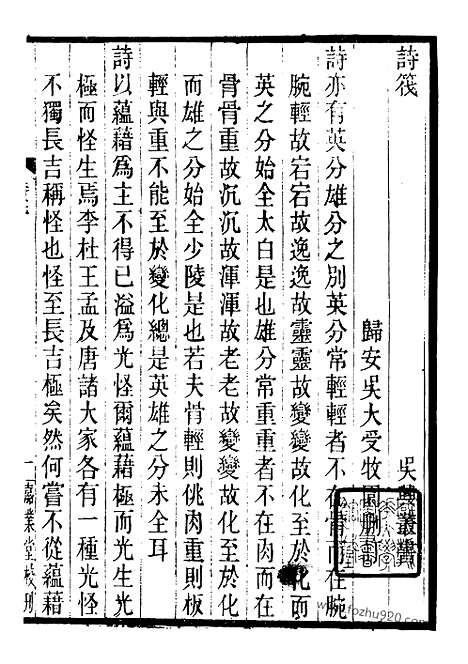 詩筏
吳興叢書
歸安吳大受牧園刪
詩亦有英分雄分之別英分常輕輕者不在骨而在腕
腕輕故宕宕故逸逸故靈靈故變變故化至於化而
英之分始全太白是也雄分常重重者不在肉而在
骨骨重故沉沉故渾渾故老老故變變故化至於化
而雄之分始全少陵是也若夫骨輕則佻肉重則板
輕與重不能至於變化總是英雄之分未全耳
詩以蘊藉爲主不得已溢爲光怪爾蘊藉極而光生光
極而怪生焉李杜王孟及唐諸大家各有一種光怪
不獨長吉稱怪也怪至長吉極矣然何嘗不從蘊藉
一
嘉業堂校刊
www.fozhu920.com